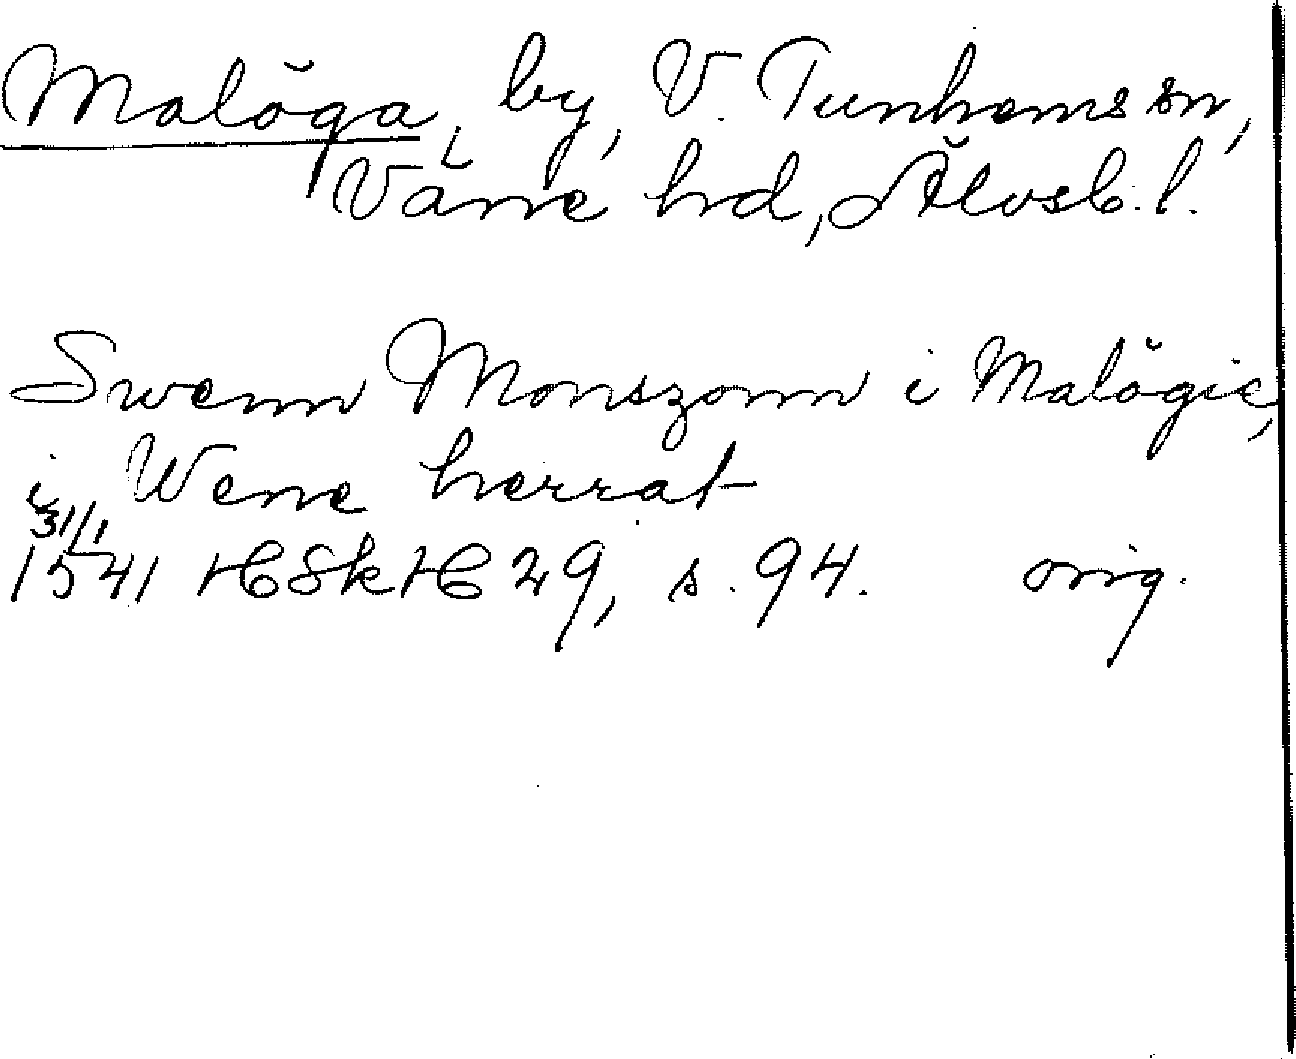 Malöga, by, V. Tunhems sn,
Väne hd, Älvsb. l.
Swenn Monszonn i Malögie,
i Wene herrat
31/1
1541 HSkH 29, s. 94. orig.